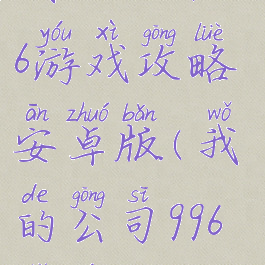 yóu xì gōng lüè
6游戏攻略
ān zhuó bǎn wǒ
安卓版(我
de gōng sī
的公司996